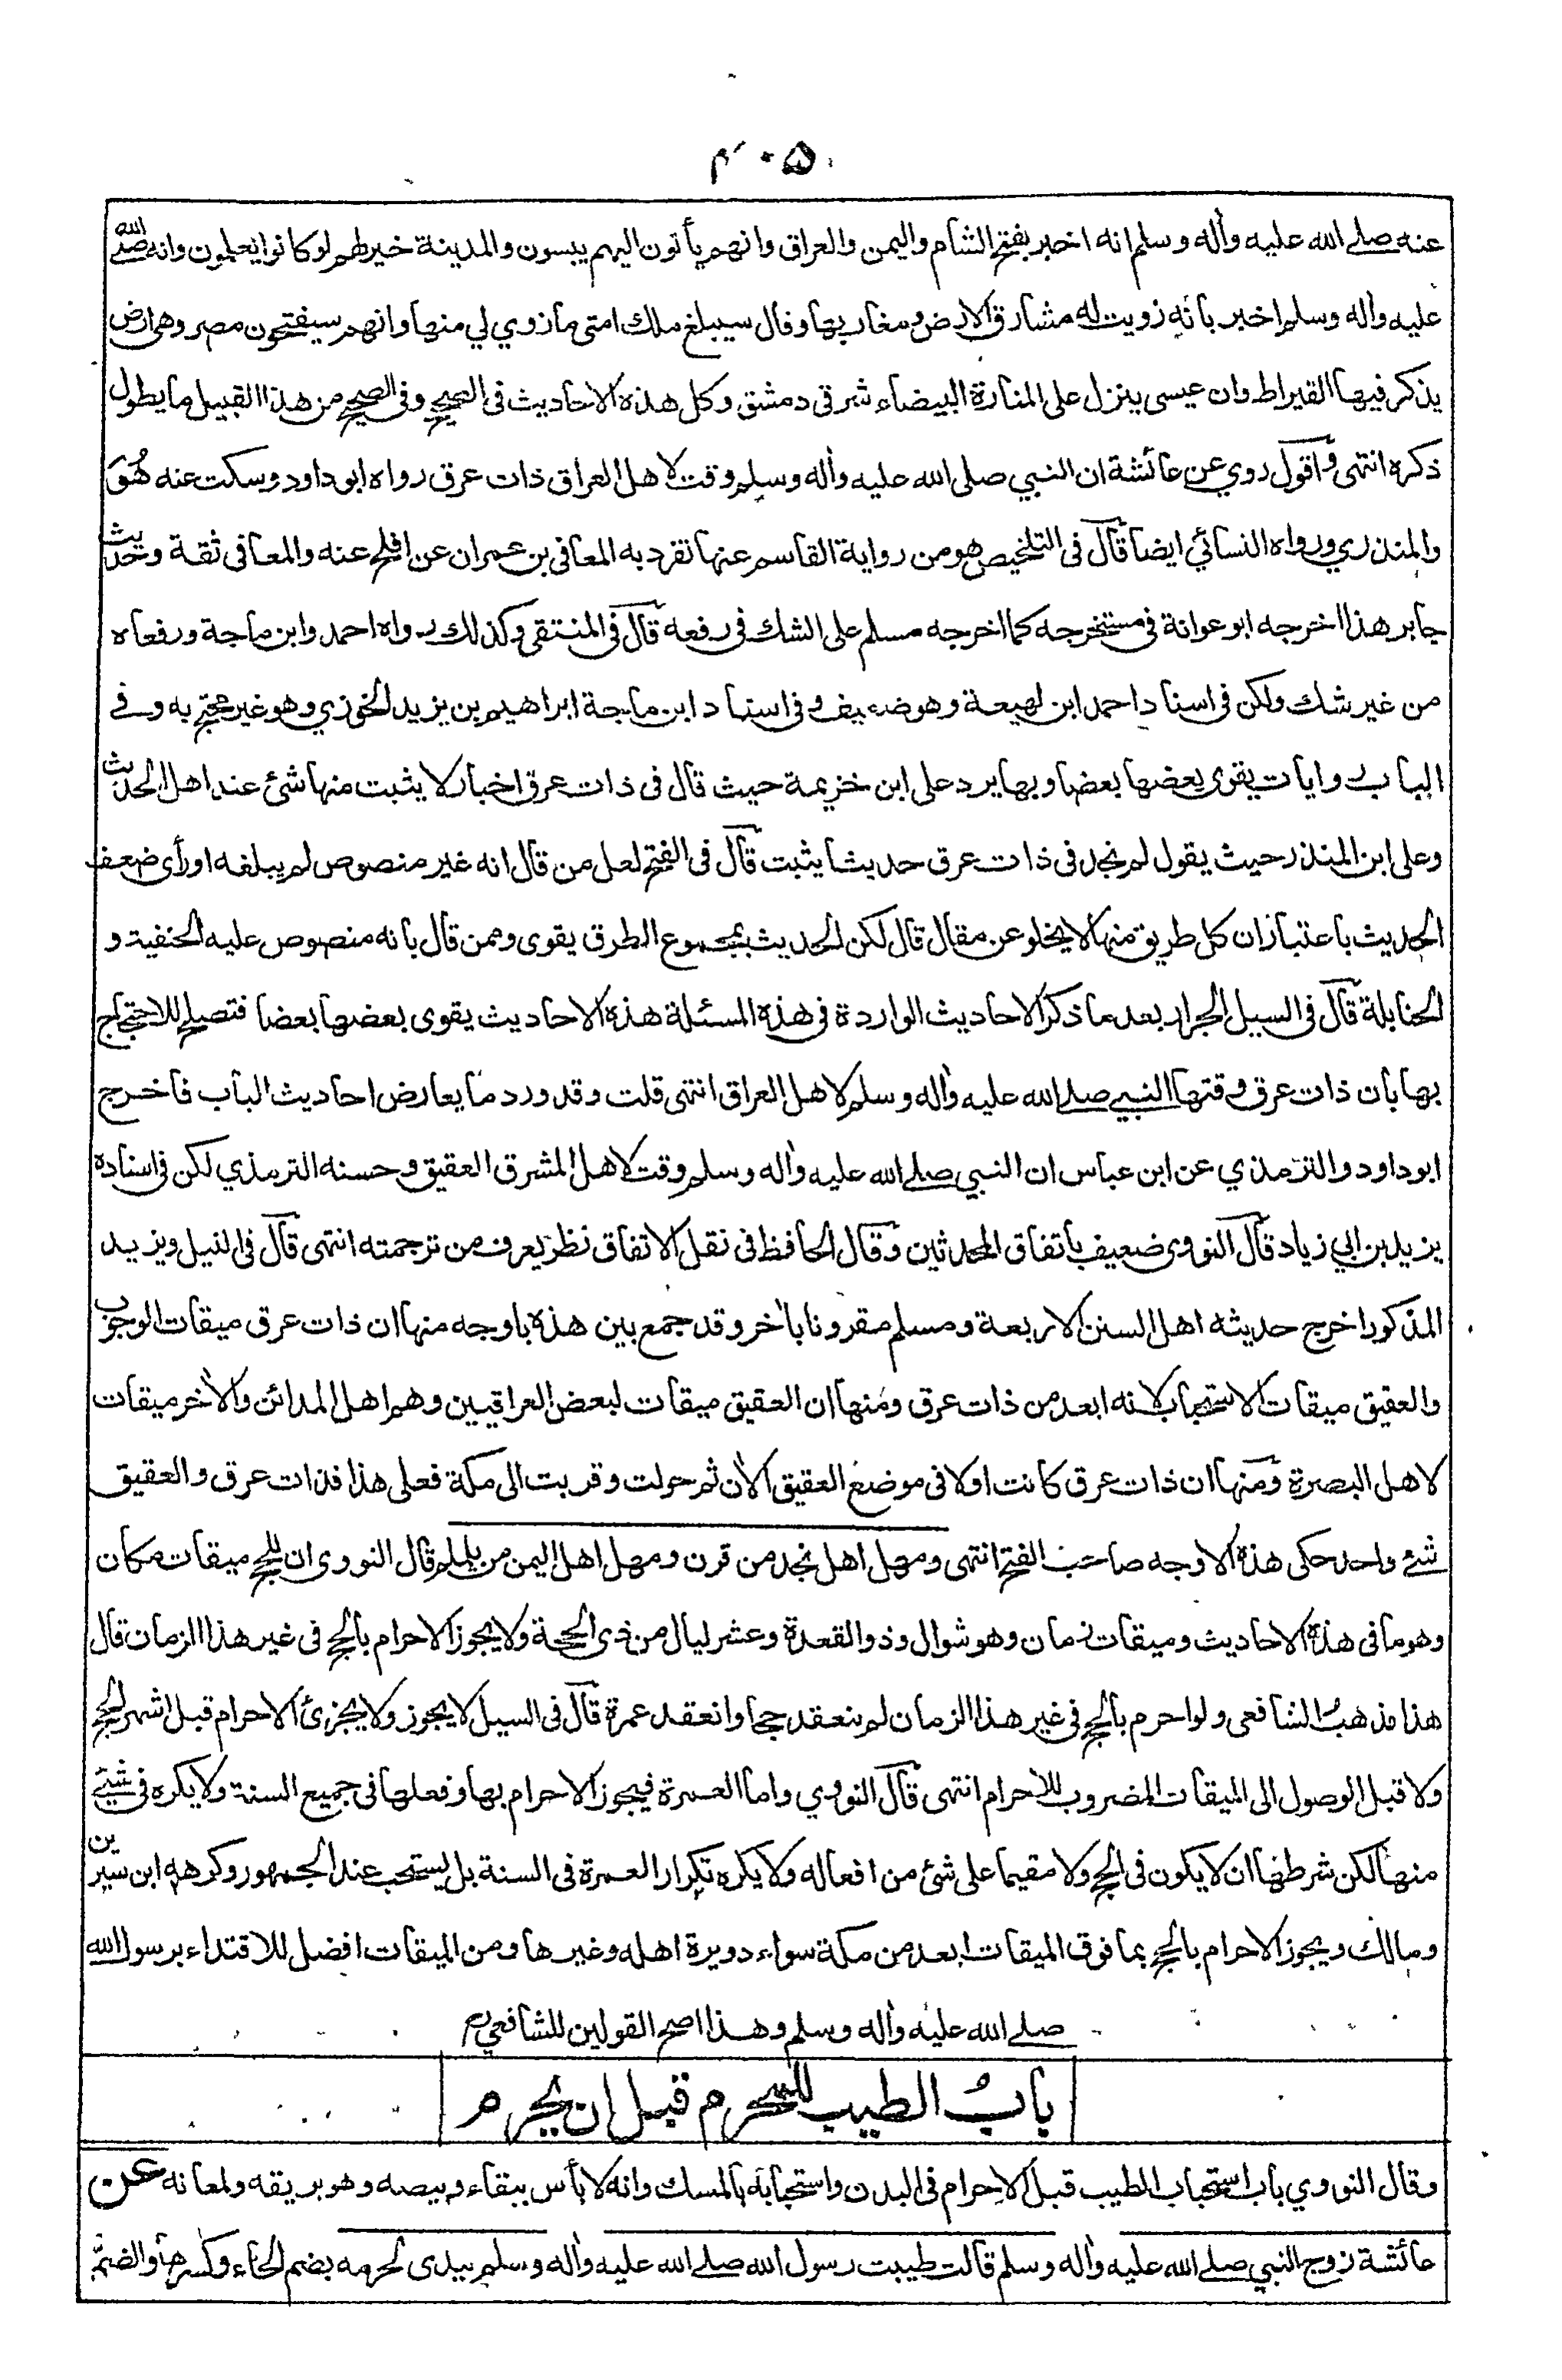 ٤٠٥
عنه صلى الله عليه واٰله وسلم انه اخبر بفتح الشام واليمن والعراق وانهم يأتون اليهم يبسون والمدينة خير لهم لو كانوا يعلمون وانه صلى الله
عليه واٰله وسلم اخبر بأنه زويت له مشارق الارض ومغاربها وقال سيبلغ ملك امتى ما زوي لي منها وانهم سيفتحون مصر وهى ارض
يذكر فيها القيراط وان عيسى ينزل على المنارة البيضاء شرقى دمشق وكل هذه الاحاديث فى الصحيح وفى الصحيح من هذا القبيل ما يطول
ذكره انتهى واقول روي عن عائشة ان النبي صلى الله عليه واٰله وسلم وقت لاهل العراق ذات عرق رواه ابوداود وسكت عنه هُوَ
والمنذري ورواه النسائي ايضا قال فى التلخيص هو من رواية القاسم عنها تفرد به المعافى بن عمران عن افلح عنه والمعافى ثقة وحديث
جابر هذا اخرجه ابوعوانة فى مستخرجه كما اخرجه مسلم على الشك فى رفعه قال فى المنتقى وكذلك رواه احمد وابن ماجة ورفعاه
من غير شك ولكن فى اسناد احمد ابن لهيعة وهو ضعيف وفى اسناد ابن ماجة ابراهيم بن يزيد الخوزي وهو غير محتج به وفى
الباب روايات يقوى بعضها بعضا وبها يرد على ابن خزيمة حيث قال فى ذات عرق اخبار لا يثبت منها شئ عند اهل الحديث
وعلى ابن المنذر حيث يقول لم نجد فى ذات عرق حديثا يثبت قال فى الفتح لعل من قال انه غير منصوص لم يبلغه او رأى ضعف
الحديث باعتبار ان كل طريق منها لا يخلو عن مقال قال لكن الحديث بمجموع الطرق يقوى وممن قال بأنه منصوص عليه الحنفية و
الحنابلة قال فى السيل الجرار بعد ما ذكر الاحاديث الواردة فى هذه المسئلة هذه الاحاديث يقوى بعضها بعضا فتصلح للاحتجاج
بها بأن ذات عرق وقتها النبي صلى الله عليه واٰله وسلم لاهل العراق انتهى قلت وقد ورد ما يعارض احاديث الباب فأخرج
ابوداود والترمذي عن ابن عباس ان النبي صلى الله عليه واٰله وسلم وقت لاهل المشرق العقيق وحسنه الترمذي لكن فى اسناده
يزيد بن ابي زياد قال النووى ضعيف باتفاق المحدثين وقال الحافظ فى نقل الاتفاق نظر يعرف من ترجمته انتهى قال فى النيل ويزيد
المذكور اخرج حديثه اهل السنن الاربعة ومسلم مقرونا باٰخر وقد جمع بين هذه باوجه منها ان ذات عرق ميقات الوجوب
والعقيق ميقات الاستحباب لانه ابعد من ذات عرق ومنها ان العقيق ميقات لبعض العراقيين وهم اهل المدائن والاٰخر ميقات
لاهل البصرة ومنها ان ذات عرق كانت اولا فى موضع العقيق الاٰن ثم حولت وقربت الى مكة فعلى هذا فذات عرق والعقيق
شئ واحد حكى هذه الاوجه صاحب الفتح انتهى ومهل اهل نجد من قرن ومهل اهل اليمن من يلملم قال النووى ان للحج ميقات مكان
وهو ما فى هذه الاحاديث وميقات زمان وهو شوال وذوالقعدة وعشر ليال من ذى الحجة ولا يجوز الاحرام بالحج فى غير هذا الزمان قال
هذا مذهب الشافعى ولو احرم بالحج فى غير هذا الزمان لم ينعقد حجا وانعقد عمرة قال فى السيل لا يجوز ولا يجزئ الاحرام قبل اشهر الحج
ولا قبل الوصول الى الميقات المضروب للاحرام انتهى قال النووي واما العمرة فيجوز الاحرام بها وفعلها فى جميع السنة ولا يكره فى شئ
منها لكن شرطها ان لا يكون فى الحج ولا مقيما على شئ من افعاله ولا يكره تكرار العمرة فى السنة بل يستحب عند الجمهور وكرهه ابن سيرين
ومالك ويجوز الاحرام بالحج بما فوق الميقات ابعد من مكة سواء دويرة اهله وغيرها ومن الميقات افضل للاقتداء برسول الله
صلى الله عليه واٰله وسلم وهذا اصح القولين للشافعي رح
باب الطيب للمحرم قبل ان يحرم
وقال النووي باب استحباب الطيب قبل الاحرام فى البدن واستحبابه بالمسك وانه لا بأس ببقاء وبيصه وهو بريقه ولمعانه عن
عائشة زوج النبي صلى الله عليه واٰله وسلم قالت طيبت رسول الله صلى الله عليه واٰله وسلم بيدى لحرمه بضم الحاء وكسرها والضم